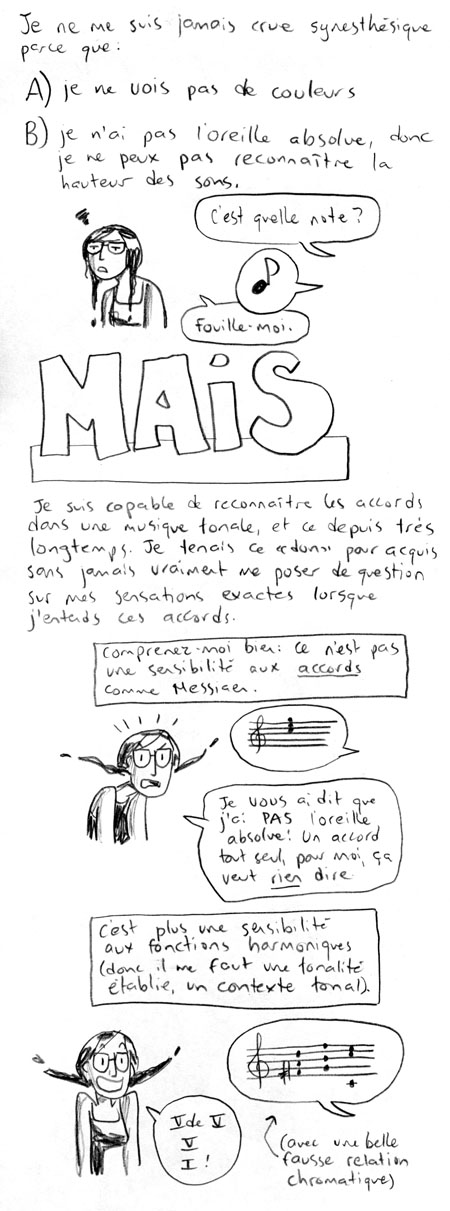 Je ne me suis jamais crue synesthésique
parce que:
A) je ne vois pas de couleurs
B) je n'ai pas l'oreille absolue, donc
je ne peux pas reconnaître la
hauteur des sons.
C'est quelle note?
Fouille-moi.
MAIS
Je suis capable de reconnaître les accords
dans une musique tonale, et ce depuis très
longtemps. Je tenais ce «don» pour acquis
sans jamais vraiment me poser de question
sur mes sensations exactes lorsque
j'entends ces accords.
Comprenez-moi bien: ce n'est pas
une sensibilité aux accords
comme Messiaen.
Je vous ai dit que
j'ai PAS l'oreille
absolue! Un accord
tout seul, pour moi, ça
veut rien dire.
C'est plus une sensibilité
aux fonctions harmoniques
(donc il me faut une tonalité
établie, un contexte tonal).
V de V
V
I!
(avec une belle
fausse relation
chromatique)